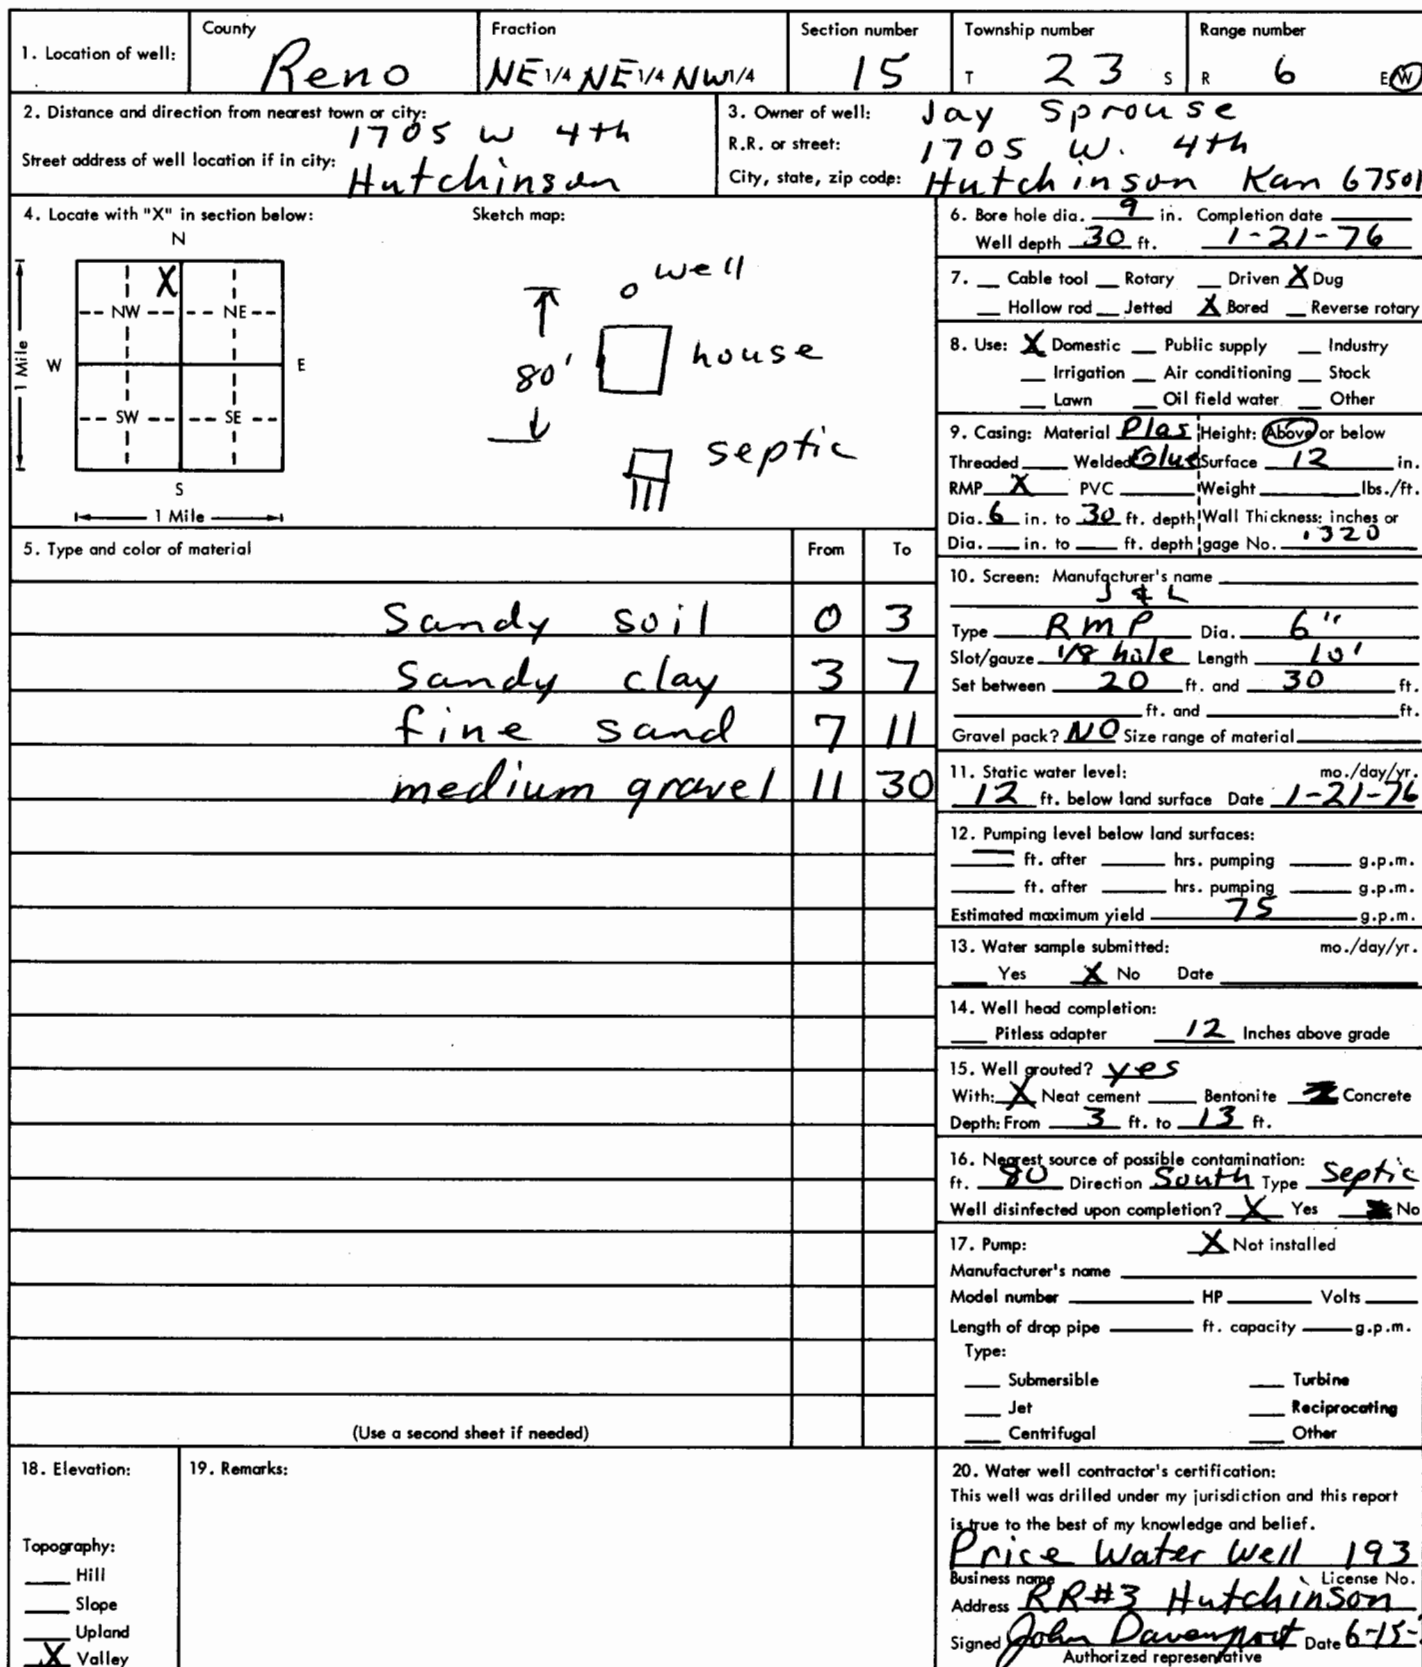 1. Location of well: County Reno Fraction NE 1/4 NE 1/4 NW 1/4 Section number 15 Township number T 23 S Range number R 6 E W
2. Distance and direction from nearest town or city:
1705 W 4th
Street address of well location if in city: Hutchinson
3. Owner of well: Jay Sprouse
R.R. or street: 1705 W. 4th
City, state, zip code: Hutchinson Kan 67501
4. Locate with "X" in section below: Sketch map:
N
X
NW NE
W E
1 Mile
SW SE
S
1 Mile
well
80' house
septic
5. Type and color of material From To
Sandy soil 0 3
Sandy clay 3 7
fine sand 7 11
medium gravel 11 30
(Use a second sheet if needed)
6. Bore hole dia. 9 in. Completion date
Well depth 30 ft. 1-21-76
7. Cable tool Rotary Driven X Dug
Hollow rod Jetted X Bored Reverse rotary
8. Use: X Domestic Public supply Industry
Irrigation Air conditioning Stock
Lawn Oil field water Other
9. Casing: Material Plas Height: Above or below
Threaded Welded Glue Surface 12 in.
RMP X PVC Weight lbs./ft.
Dia. 6 in. to 30 ft. depth Wall Thickness: inches or
Dia. in. to ft. depth gage No. .320
10. Screen: Manufacturer's name
J & L
Type RMP Dia. 6"
Slot/gauze 1/8 hole Length 10'
Set between 20 ft. and 30 ft.
ft. and ft.
Gravel pack? NO Size range of material
11. Static water level: mo./day/yr.
12 ft. below land surface Date 1-21-76
12. Pumping level below land surfaces:
ft. after hrs. pumping g.p.m.
ft. after hrs. pumping g.p.m.
Estimated maximum yield 75 g.p.m.
13. Water sample submitted: mo./day/yr.
Yes X No Date
14. Well head completion:
Pitless adapter 12 Inches above grade
15. Well grouted? yes
With: X Neat cement Bentonite Concrete
Depth: From 3 ft. to 13 ft.
16. Nearest source of possible contamination:
ft. 80 Direction South Type Septic
Well disinfected upon completion? X Yes No
17. Pump: X Not installed
Manufacturer's name
Model number HP Volts
Length of drop pipe ft. capacity g.p.m.
Type:
Submersible Turbine
Jet Reciprocating
Centrifugal Other
18. Elevation:
Topography:
Hill
Slope
Upland
X Valley
19. Remarks:
20. Water well contractor's certification:
This well was drilled under my jurisdiction and this report
is true to the best of my knowledge and belief.
Price Water Well 193
Business name License No.
Address RR#3 Hutchinson
Signed John Davenport Date 6-15-
Authorized representative